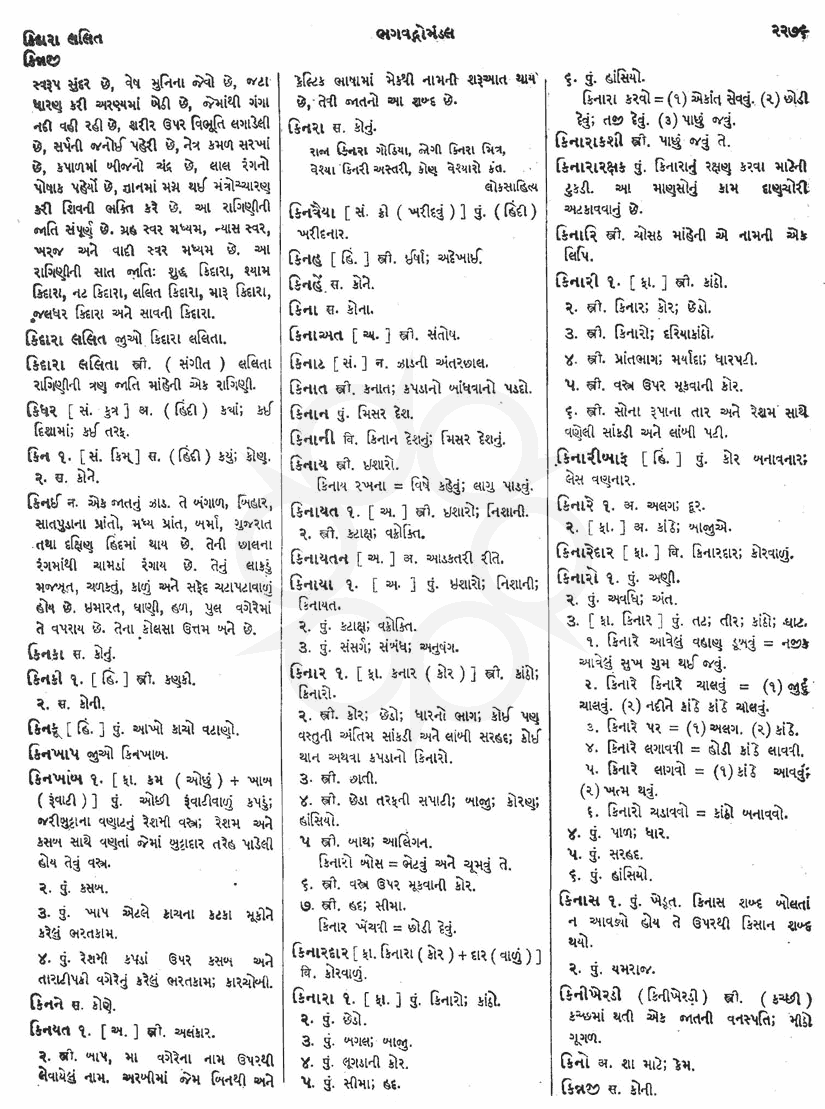 કિદારા લલિત
ભગવદ્ગોમંડલ
૨૨૭૬
કિન્નજી
સ્વરૂપ સુંદર છે, વેષ મુનિના જેવો છે, જટા
ધારણ કરી અરણ્યમાં બેઠી છે, જેમાંથી ગંગા
નદી વહી રહી છે, શરીર ઉપર વિભૂતિ લગાડેલી
છે, સર્પની જનોઈ પહેરી છે, નેત્ર કમળ સરખાં
છે, કપાળમાં બીજનો ચંદ્ર છે, લાલ રંગનો
પોષાક પહેર્યો છે, જ્ઞાનમાં મગ્ન થઈ મંત્રોચ્ચારણ
કરી શિવની ભક્તિ કરે છે. આ રાગિણીની
જાતિ સંપૂર્ણ છે. ગ્રહ સ્વર મધ્યમ, ન્યાસ સ્વર,
ખરજ અને વાદી સ્વર મધ્યમ છે. આ
રાગિણીની સાત જાતિઃ શુદ્ધ કિદારા, શ્યામ
કિદારા, નટ કિદારા, લલિત કિદારા, મારૂ કિદારા,
જલધર કિદારા અને સાવની કિદારા.
કિદારા લલિત જુઓ કિદારા લલિતા.
કિદારા લલિતા સ્ત્રી. ( સંગીત ) લલિતા
રાગિણીની ત્રણ જાતિ માંહેની એક રાગિણી.
કિધર [ સં. કુત્ર ] અ. ( હિંદી ) કયાં; કઈ
દિશામાં; કઈ તરફ.
કિન ૧. [ સં. કિમ્ ] સ. ( હિંદી ) કયું; કોણ.
૨. સ. કોને.
કિનઈ ન. એક જાતનું ઝાડ. તે બંગાળ, બિહાર,
સાતપુડાના પ્રાંતો, મધ્ય પ્રાંત, બર્મા, ગુજરાત
તથા દક્ષિણ હિંદમાં થાય છે. તેની છાલના
રંગમાંથી ચામડાં રંગાય છે. તેનું લાકડું
મજબૂત, ચળકતું, કાળું અને સફેદ ચટાપટાવાળું
હોય છે. ઇમારત, ઘાણી, હળ, પુલ વગેરેમાં
તે વપરાય છે. તેના કોલસા ઉત્તમ બને છે.
કિનકા સ. કોનું.
કિનકી ૧. [ હિં. ] સ્ત્રી. કણકી.
૨. સ. કોની.
કિનકૂ [ હિં. ] પું. આખો કાચો વટાણો.
કિનખાપ જુઓ કિનખાબ.
કિનખાંબ ૧. [ ફા. કમ ( ઓછું ) + ખાબ
( રૂંવાટી ) ] પું. ઓછી રૂંવાટીવાળું કપડું;
જરીબુટ્ટાના વણાટનું રેશમી વસ્ત્ર; રેશમ અને
કસબ સાથે વણતાં જેમાં બુટ્ટાદાર તરેહ પાડેલી
હોય તેવું વસ્ત્ર.
૨. પું. કસબ.
૩. પું. ખાપ એટલે કાચના કટકા મૂકીને
કરેલું ભરતકામ.
૪. પું. રેશમી કપડાં ઉપર કસબ અને
તારાટીપકી વગેરેનું કરેલું ભરતકામ; કારચોબી.
કિનને સ. કોણે.
કિનયત ૧. [ અ. ] સ્ત્રી. અલંકાર.
૨. સ્ત્રી. બાપ, મા વગેરેના નામ ઉપરથી
લેવાયેલું નામ. અરબીમાં જેમ બિનથી અને
કેલ્ટિક ભાષામાં મેકથી નામની શરૂઆત થાય
છે, તેવી જાતનો આ શબ્દ છે.
કિનરા સ. કોનું.
રાજા કિનરા ગોઠિયા, જોગી કિનરા મિત્ર,
વેશ્યા કિનરી અસ્તરી, કોણ વેશ્યારો કંત.
લોકસાહિત્ય
કિનવૈયા [ સં. ક્રી ( ખરીદવું ) ] પું. ( હિંદી )
ખરીદનાર.
કિનહ [ હિં. ] સ્ત્રી. ઈર્ષા; અદેખાઈ.
કિનહેં સ. કોને.
કિના સ. કોના.
કિનાઅત [ અ. ] સ્ત્રી. સંતોષ.
કિનાટ [ સં. ] ન. ઝાડની અંતરછાલ.
કિનાત સ્ત્રી. કનાત; કપડાનો બાંધવાનો પડદો.
કિનાન પું. મિસર દેશ.
કિનાની વિ. કિનાન દેશનું; મિસર દેશનું.
કિનાય સ્ત્રી. ઇશારો.
કિનાય રખના = વિષે કહેવું; લાગુ પાડવું.
કિનાયત ૧. [ અ. ] સ્ત્રી. ઇશારો; નિશાની.
૨. સ્ત્રી. કટાક્ષ; વક્રોક્તિ.
કિનાયતન [ અ. ] અ. આડકતરી રીતે.
કિનાયા ૧. [ અ. ] પું. ઇશારો; નિશાની;
કિનાયત.
૨. પું. કટાક્ષ; વક્રોક્તિ.
૩. પું. સંસર્ગ; સંબંધ; અનુષંગ.
કિનાર ૧. [ ફા. કનાર ( કોર ) ] સ્ત્રી. કાંઠો;
કિનારો.
૨. સ્ત્રી. કોર; છેડો; ધારનો ભાગ; કોઈ પણ
વસ્તુની અંતિમ સાંકડી અને લાંબી સરહદ; કોઈ
થાન અથવા કપડાનો કિનારો.
૩. સ્ત્રી. છાતી.
૪. સ્ત્રી. છેડા તરફની સપાટી; બાજુ; કોરણ;
હાંસિયો.
૫ સ્ત્રી. બાથ; આલિંગન.
કિનારો બોસ = ભેટવું અને ચૂમવું તે.
૬. સ્ત્રી. વસ્ત્ર ઉપર મૂકવાની કોર.
૭. સ્ત્રી. હદ; સીમા.
કિનાર ખેંચવી = છોડી દેવું.
કિનારદાર [ ફા. કિનારા ( કોર ) + દાર ( વાળું ) ]
વિ. કોરવાળું.
કિનારા ૧. [ ફા. ] પું. કિનારો; કાંઠો.
૨. પું. છેડો.
૩. પું. બગલ; બાજુ.
૪. પું. લૂગડાની કોર.
૫. પું. સીમા; હદ.
૬. પું. હાંસિયો.
કિનારા કરવો = (૧) એકાંત સેવવું. (૨) છોડી
દેવું; તજી દેવું. (૩) પાછું જવું.
કિનારાકશી સ્ત્રી. પાછું જવું તે.
કિનારારક્ષક પું. કિનારાનું રક્ષણ કરવા માટેની
ટુકડી. આ માણસોનું કામ દાણચોરી
અટકાવવાનું છે.
કિનારિ સ્ત્રી. ચોસઠ માંહેની એ નામની એક
લિપિ.
કિનારી ૧. [ ફા. ] સ્ત્રી. કાંઠો.
૨. સ્ત્રી. કિનાર; કોર; છેડો.
૩. સ્ત્રી. કિનારો; દરિયાકાંઠો.
૪. સ્ત્રી. પ્રાંતભાગ; મર્યાદા; ધારપટી.
૫. સ્ત્રી. વસ્ત્ર ઉપર મૂકવાની કોર.
૬. સ્ત્રી. સોના રૂપાના તાર અને રેશમ સાથે
વણેલી સાંકડી અને લાંબી પટી.
કિનારીબાફ [ હિં. ] પું. કોર બનાવનાર;
લેસ વણનાર.
કિનારે ૧. અ. અલગ; દૂર.
૨. [ ફા. ] અ. કાંઠે; બાજુએ.
કિનારેદાર [ ફા. ] વિ. કિનારદાર; કોરવાળું.
કિનારો ૧. પું. અણી.
૨. પું. અવધિ; અંત.
૩. [ ફા. કિનાર ] પું. તટ; તીર; કાંઠો; ઘાટ.
૧. કિનારે આવેલું વહાણ ડૂબવું = નજીક
આવેલું સુખ ગુમ થઈ જવું.
૨. કિનારે કિનારે ચાલવું = (૧) જુદું
ચાલવું. (૨) નદીને કાંઠે કાંઠે ચાલવું.
૩. કિનારે પર = (૧) અલગ. (૨) કાંઠે.
૪. કિનારે લગાવવી = હોડી કાંઠે લાવવી.
૫. કિનારે લાગવો = (૧) કાંઠે આવવું;
(૨) ખત્મ થવું.
૬. કિનારો ચડાવવો = કાંઠો બનાવવો.
૪. પું. પાળ; ધાર.
૫. પું. સરહદ.
૬. પું. હાંસિયો.
કિનાસ ૧. પું. ખેડૂત. કિનાસ શબ્દ બોલતાં
ન આવડ્યો હોય તે ઉપરથી કિસાન શબ્દ
થયો.
૨. પું. યમરાજ.
કિનીખેરડી ( કિનીખેરડી ) સ્ત્રી. ( કચ્છી )
કચ્છમાં થતી એક જાતની વનસ્પતિ; મીઠો
ગૂગળ.
કિનો અ. શા માટે; કેમ.
કિન્નજી સ. કોની.